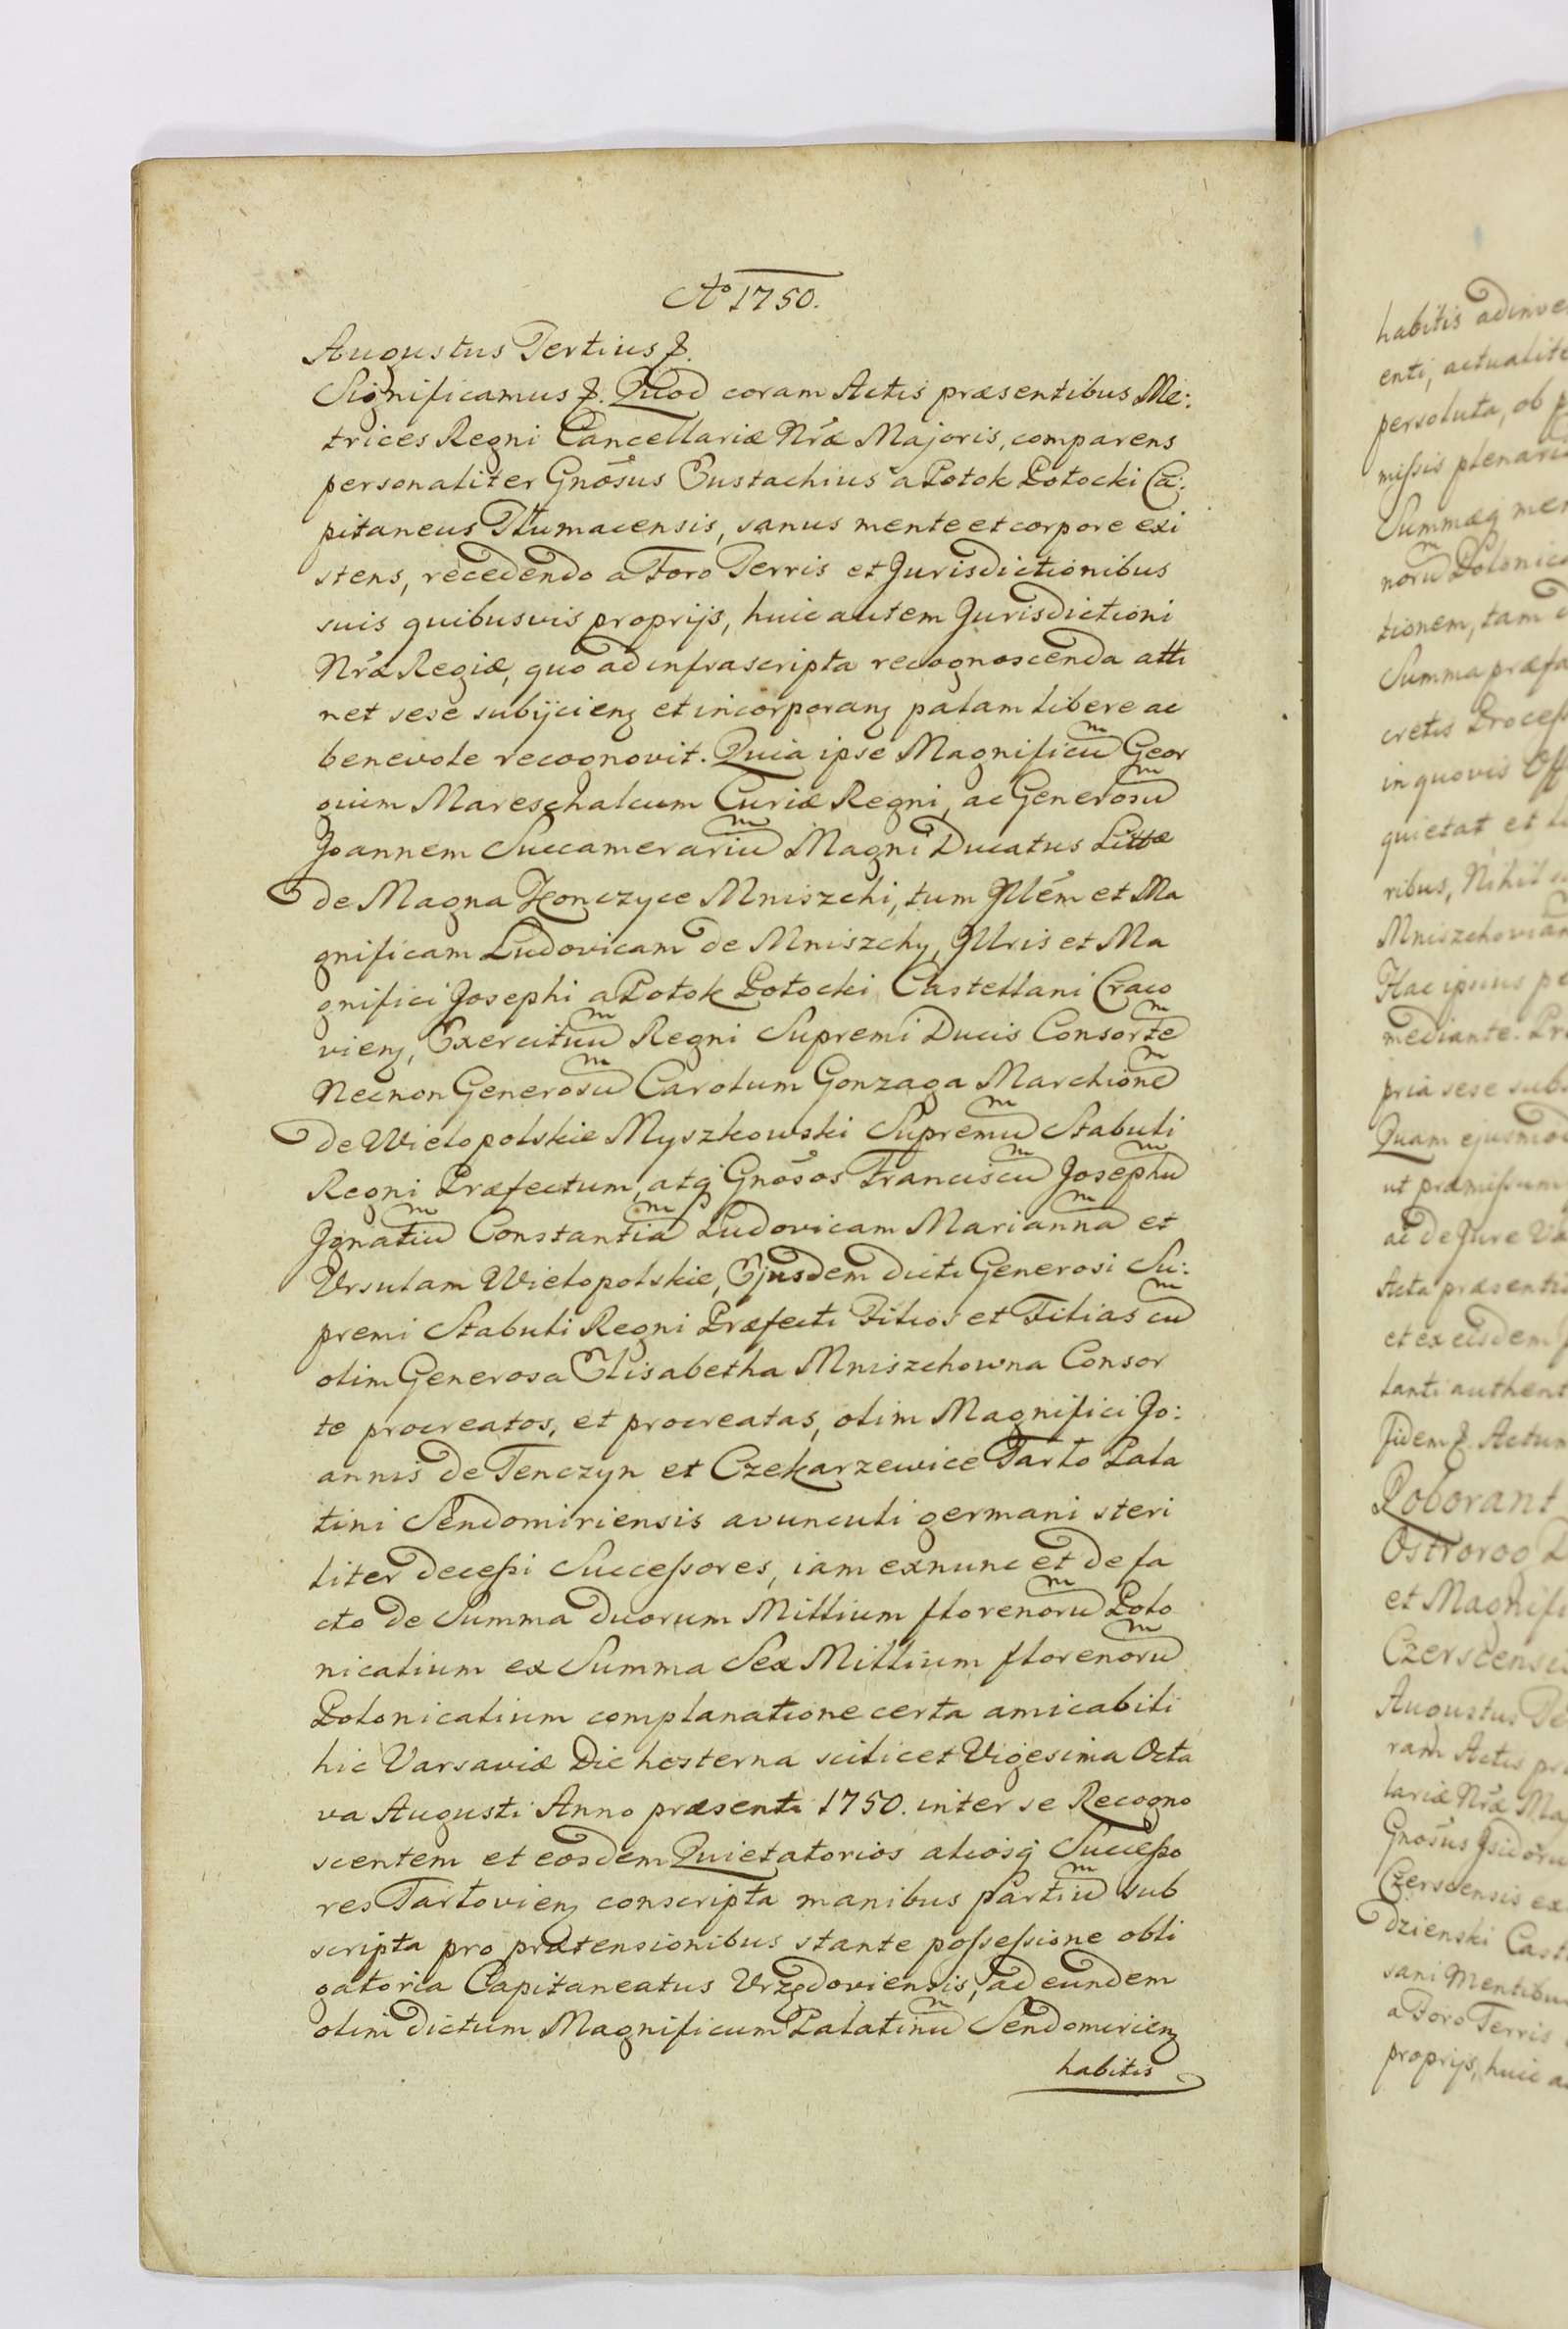 Ao 1750.
Augustus Tertius &.
Significamus &. Quod coram Actis præsentibus Me:
trices Regni Cancellariæ Nræ Majoris, comparens
personaliter Gnosus Eustachius a Potok Potocki Ca:
pitaneus Tłumacensis, sanus mente et corpore exi
stens, recedendo a Foro Terris et Jurisdictionibus
suis quibusvis proprijs, huic autem Jurisdictioni
Nræ Regiæ, quo ad infrascripta recognoscenda atti
net sese subijcienƷ et incorporanƷ palam libere ac
benevole recognovit. Quia ipse Magnificum Geor
gium Mareschalcum Curiæ Regni, ac Generosum
Joannem Succamerarium Magni Ducatus Littæ
de Magna Konczyce Mniszchi, tum Jllem et Ma
gnificam Ludovicam de Mniszchy, Jllris et Ma
gnifici Josephi a Potok Potocki Castellani Craco
vienƷ, Exercituum Regni Supremi Ducis Consortem
Necnon Generosum Carolum Gonzaga Marchionem
de Wielopolskie Myszkowski Supremum Stabuli
Regni Præfectum, atq Gnosos Franciscum Josephum
Jgnatium Constantiam Ludovicam Mariannam et
Ursulam Wielopolskie, Ejusdem dicti Generosi Su:
premi Stabuli Regni Præfecti Filios et Filias cum
olim Generosa Elisabetha Mniszchowna Consor
te procreatos, et procreatas, olim Magnifici Jo:
annis de Tenczyn et Czekarzewice Tarło Pala
tini Sendomiriensis avunculi germani steri
liter decessi Successores, iam exnunc et de fa
cto de Summa duorum Millium florenorum Polo
nicalium ex Summa Sex Millium florenorum
Polonicalium complanatione certa amicabili
hic Varsaviæ Die hesterna scilicet Vigesima Octa
va Augusti Anno præsenti 1750. inter se Recogno
scentem et eosdem Quietatorios aliosq Successo
res TarłovienƷ conscripta manibus Partium sub
scripta pro prætensionibus stante possessione obli
gatoria Capitaneatus Urzędoviensis, ad eundem
olim dictum Magnificum Palatinum SendomirienƷ
habitis
habitis
enti,
persoluta, ob
missis
Summæq
tionem, tam
Summa
cretis
in quovis
quietat, et
ribus, Nihil
mediante.
pria sese
Quam
ut præmissum
ac de Jure
Acta
et ex eisdem
fidem &.
Roborant
Ostrorog
et
Augustus
ram Actis
lariæ Nræ
Gnosus
Czerscensis ex
dzienski
sani
a Foro Terris
proprijs, huic